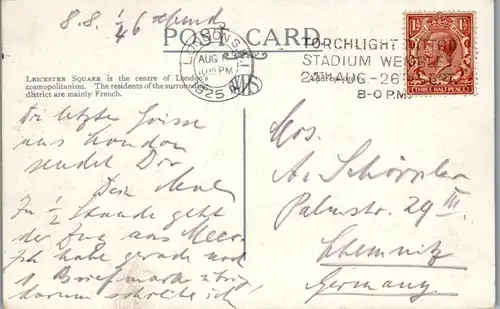 8.8. ½6 abend
POST CARD
LONDON S.W.1
AUG 8
1925
TORCHLIGHT TATTOO
STADIUM WEMBLEY
22nd AUG.-26 SEPT
8-0 P.M.
THREE HALF PENCE
LEICESTER SQUARE is the centre of London's
cosmopolitanism. The residents of the surrounding
district are mainly French.
Die letzten Grüsse
aus London
sendet Dir
Dein
In ½ Stunde geht
der Zug aus
ich habe gerade noch
1 Briefmarke übrig
darum schreibe ich!
Mrs.
A. Schörpler
Palmstr. 29 III.
Chemnitz
Germany